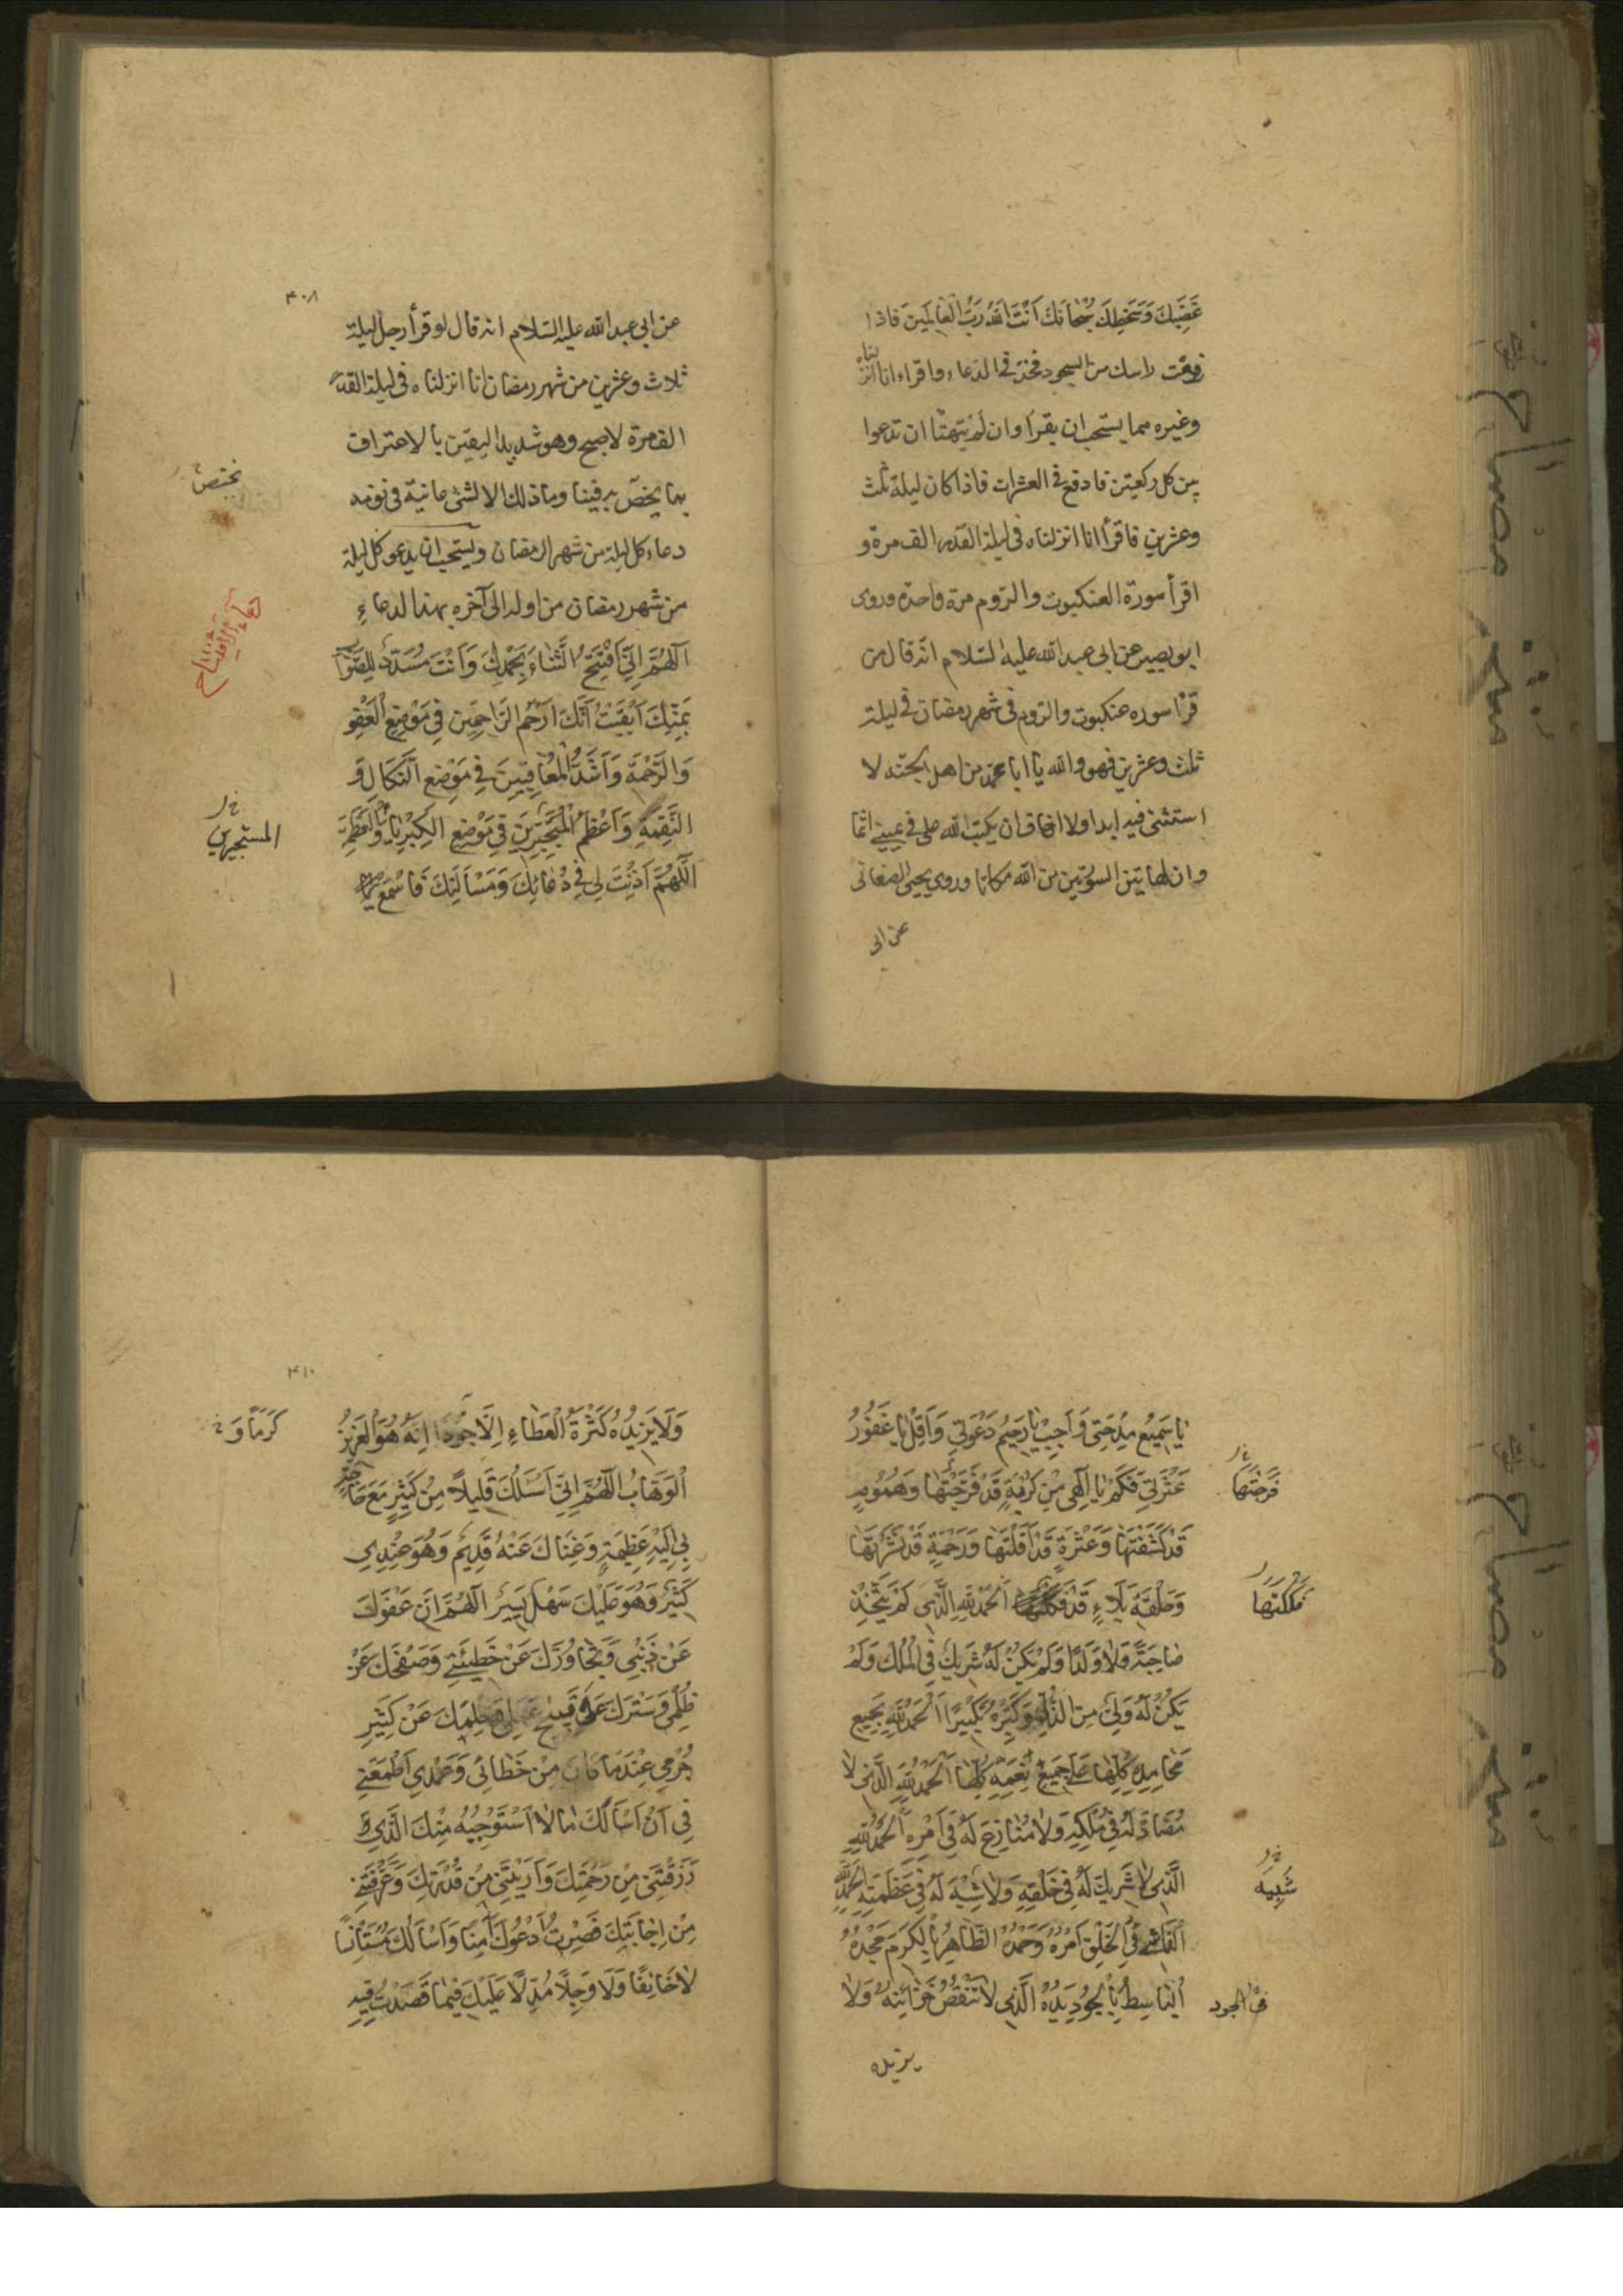 غَضَبِكَ وَسَخَطِكَ سُبْحَانَكَ اَنْتَ اللهُ رَبُّ الْعَالَمِينَ فاذا
رفعت راسك من السجود فخذ في الدعاء واقراء انا انز
لناه
وغيره مما يستحب ان يقرأ وان لم يتهيّأ ان تدعوا
بين كل ركعتين فادفع في العشرات فاذا كان ليلة ثلث
وعشرين فاقرأ انا انزلناه في ليلة القدر الف مرة و
اقرأ سورة العنكبوت والروم مرة واحدة وروى
ابو بصير عن ابي عبد الله عليه السّلام انّه قال من
قرأ سوره عنكبوت والروم في شهر رمضان في ليلة
ثلث وعشرين فهو والله يا ابا محمد من اهل الجنّة لا
استثنى فيه ابدا ولا اخاف ان يكتب الله على في يميني اثما
وان لهاتين السورتين من الله مكانا وروى يحيى الصنعانى
عن ابى
٤٠٨
عن ابي عبد الله عليه السّلام انه قال لو قرأ رجل ليلة
ثلاث وعشرين من شهر رمضان انا انزلناه في ليلة القدر
الف مرة لاصبح وهو شديد اليقين بالاعتراف
بما يخصّ به فينا وما ذلك الا لشئ عاينه في نومه
نختص
دعاء كل ليلة من شهر الرمضان ويستحب ان يدعو كل ليلة
من شهر رمضان من اوله الى آخره بهذا الدعاء
دعاء الافتتاح
اَللّهُمَّ اِنّي اَفْتَتِحُ الثَّنَاءَ بِحَمْدِكَ وَاَنْتَ مُسَدِّدٌ لِلصَّوَابِ
بِمَنِّكَ اَيْقَنْتُ اَنَّكَ اَرْحَمُ الرَّاحِمِينَ فِي مَوْضِعِ الْعَفْوِ
وَالرَّحْمَةِ وَاَشَدُّ الْمُعَاقِبِينَ فِي مَوْضِعِ النَّكَالِ وَ
النَّقِمَةِ وَاَعْظَمُ الْمُتَجَبِّرِينَ فِي مَوْضِعِ الْكِبْرِيَاءِ وَالْعَظَمَةِ
المستجبرين
اَللّهُمَّ اَذِنْتَ لِي فِي دُعَائِكَ وَمَسْاَلَتِكَ فَاسْمَعْ
يَا سَمِيعُ مِدْحَتِي وَاَجِبْ يَا رَحِيمُ دَعْوَتِي وَاَقِلْ يَا غَفُورُ
عَثْرَتِي فَكَمْ يَا اِلَهِي مِنْ كُرْبَةٍ قَدْ فَرَّجْتَهَا وَهُمُومٍ
فَرَّجْتَهَا
قَدْ كَشَفْتَهَا وَعَثْرَةٍ قَدْ اَقَلْتَهَا وَرَحْمَةٍ قَدْ نَشَرْتَهَا
وَحَلْقَةِ بَلَاءٍ قَدْ فَكَكْتَهَا اَلْحَمْدُ لِلّهِ الَّذِي لَمْ يَتَّخِذْ
فككتها
صَاحِبَةً وَلَا وَلَدًا وَلَمْ يَكُنْ لَهُ شَرِيكٌ فِي الْمُلْكِ وَلَمْ
يَكُنْ لَهُ وَلِيٌّ مِنَ الذُّلِّ وَكَبِّرْهُ تَكْبِيرًا اَلْحَمْدُ لِلّهِ بِجَمِيعِ
مَحَامِدِهِ كُلِّهَا عَلَى جَمِيعِ نِعَمِهِ كُلِّهَا اَلْحَمْدُ لِلّهِ الَّذِي لَا
مُضَادَّ لَهُ فِي مُلْكِهِ وَلَا مُنَازِعَ لَهُ فِي اَمْرِهِ اَلْحَمْدُ لِلّهِ
الَّذِي لَا شَرِيكَ لَهُ فِي خَلْقِهِ وَلَا شِبْهَ لَهُ فِي عَظَمَتِهِ اَلْحَمْدُ لِلّهِ
شَبِيهَ
اَلْفَاشِي فِي الْخَلْقِ اَمْرُهُ وَحَمْدُهُ الظَّاهِرِ بِالْكَرَمِ مَجْدُهُ
اَلْبَاسِطِ بِالْجُودِ يَدَهُ الَّذِي لَا تَنْقُصُ خَزَائِنُهُ وَلَا
الجود
يزيده
٤١٠
وَلَا يَزِيدُهُ كَثْرَةُ الْعَطَاءِ اِلَّا جُودًا اِنَّهُ هُوَ الْعَزِيزُ
كَرَمًا وَ
الْوَهَّابُ اَللّهُمَّ اِنّي اَسْئَلُكَ قَلِيلاً مِنْ كَثِيرٍ مَعَ حَاجَةٍ
بِي اِلَيْهِ عَظِيمَةٍ وَغِنَاكَ عَنْهُ قَدِيمٌ وَهُوَ عِنْدِي
كَثِيرٌ وَهُوَ عَلَيْكَ سَهْلٌ يَسِيرٌ اَللّهُمَّ اِنَّ عَفْوَكَ
عَنْ ذَنْبِي وَتَجَاوُزَكَ عَنْ خَطِيئَتِي وَصَفْحَكَ عَنْ
ظُلْمِي وَسَتْرَكَ عَلَى قَبِيحِ عَمَلِي وَحِلْمَكَ عَنْ كَثِيرِ
جُرْمِي عِنْدَمَا كَانَ مِنْ خَطَائِي وَعَمْدِي اَطْمَعَنِي
فِي اَنْ اَسْاَلَكَ مَا لَا اَسْتَوْجِبُهُ مِنْكَ الَّذِي
رَزَقْتَنِي مِنْ رَحْمَتِكَ وَاَرَيْتَنِي مِنْ قُدْرَتِكَ وَعَرَّفْتَنِي
مِنْ اِجَابَتِكَ فَصِرْتُ اَدْعُوكَ اٰمِنًا وَاَسْاَلُكَ مُسْتَاْنِسًا
لَا خَائِفًا وَلَا وَجِلاً مُدِلًّا عَلَيْكَ فِيمَا قَصَدْتُ فِيهِ